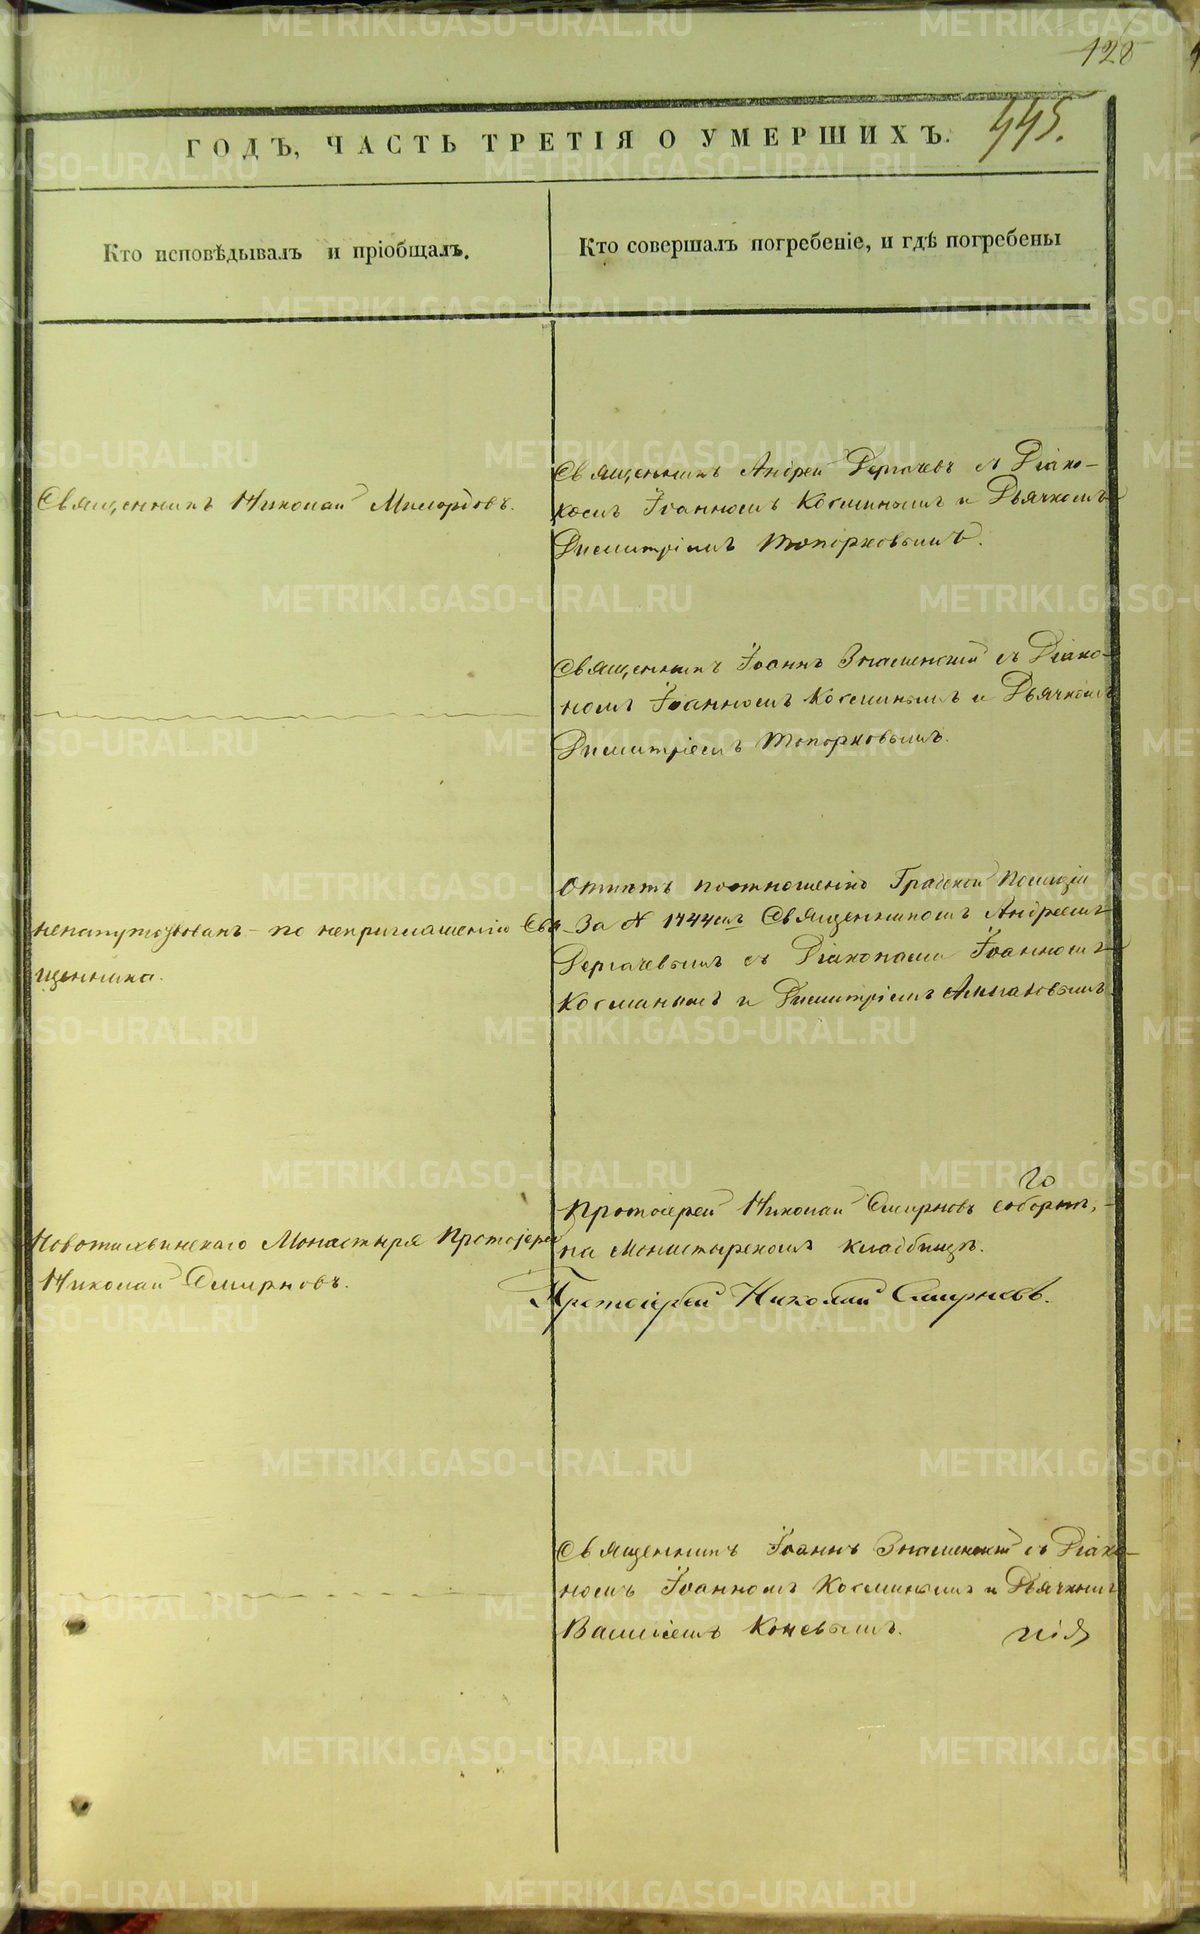 128
445.
ГОДЪ, ЧАСТЬ ТРЕТІЯ О УМЕРШИХЪ.
Кто исповѣдывалъ и пріобщалъ.
Кто совершалъ погребеніе, и гдѣ погребены
Священникъ Николай Милордовъ.
Священникъ Андрей Дергачевъ съ Діако-
номъ Іоанномъ Косминымъ и Дьячкомъ
Димитріемъ Топорковымъ.
Священникъ Іоаннъ Знаменскій съ Діако-
номъ Іоанномъ Косминымъ и Дьячкомъ
Димитріемъ Топорковымъ.
ненапутствованъ - по неприглашенію Свя-
щенника.
Отпѣтъ по отношенію Градской Полиціи
За № 1744мъ Священникомъ Андреемъ
Дергачевымъ съ Діаконами Іоанномъ
Косминымъ и Димитріемъ
Новотихвинскаго Монастыря Протоіерей
Николай Смирновъ.
го
Протоіерей Николай Смирновъ соборнѣ,
на Монастырскомъ кладбищѣ.
Протоіерей Николай Смирновъ.
Священникъ Іоаннъ Знаменскій съ Діако-
номъ Іоанномъ Косминымъ и Дьячкомъ
Василіемъ Коневымъ.
METRIKI.GASO-URAL.RU